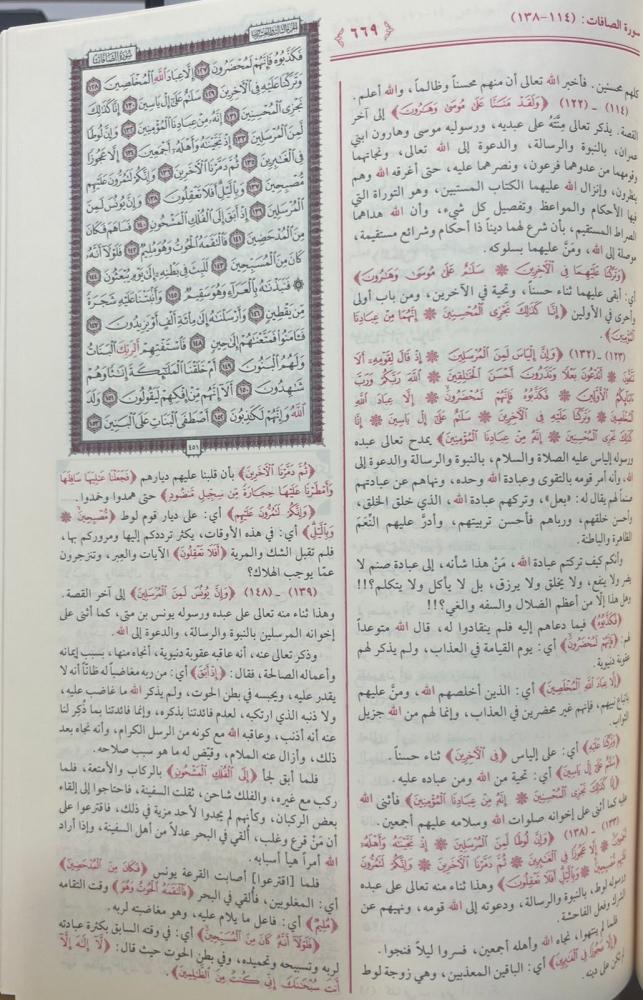 سورة الصافات: (١١٤-١٣٨)
٦٦٩
كلهم محسنين. فأخبر الله تعالى أن منهم محسناً وظالماً، والله أعلم.
(١١٤ - ١٢٢) ﴿وَلَقَدْ مَنَنَّا عَلَىٰ مُوسَىٰ وَهَـٰرُونَ﴾ إلى آخر
القصة. يذكر تعالى مِنَّته على عبديه، ورسوليه موسى وهارون ابني
عمران، بالنبوة والرسالة، والدعوة إلى الله تعالى، ونجاتهما
وقومهما من عدوهما فرعون، ونصرهما عليه، حتى أغرقه الله وهم
ينظرون، وإنزال الله عليهما الكتاب المستبين، وهو التوراة التي
فيها الأحكام والمواعظ وتفصيل كل شيء، وأن الله هداهما
الصراط المستقيم، بأن شرع لهما ديناً ذا أحكام وشرائع مستقيمة،
موصلة إلى الله، ومَنَّ عليهما بسلوكه.
﴿وَتَرَكْنَا عَلَيْهِمَا فِى ٱلْـَٔاخِرِينَ * سَلَـٰمٌ عَلَىٰ مُوسَىٰ وَهَـٰرُونَ﴾
أي: أبقى عليهما ثناء حسناً، وتحية في الآخرين، ومن باب أولى
وأحرى في الأولين ﴿إِنَّا كَذَٰلِكَ نَجْزِى ٱلْمُحْسِنِينَ * إِنَّهُمَا مِنْ عِبَادِنَا
ٱلْمُؤْمِنِينَ﴾.
(١٢٣ - ١٣٢) ﴿وَإِنَّ إِلْيَاسَ لَمِنَ ٱلْمُرْسَلِينَ * إِذْ قَالَ لِقَوْمِهِۦٓ أَلَا
تَتَّقُونَ * أَتَدْعُونَ بَعْلًا وَتَذَرُونَ أَحْسَنَ ٱلْخَـٰلِقِينَ * ٱللَّهَ رَبَّكُمْ وَرَبَّ
ءَابَآئِكُمُ ٱلْأَوَّلِينَ * فَكَذَّبُوهُ فَإِنَّهُمْ لَمُحْضَرُونَ * إِلَّا عِبَادَ ٱللَّهِ
ٱلْمُخْلَصِينَ * وَتَرَكْنَا عَلَيْهِ فِى ٱلْـَٔاخِرِينَ * سَلَـٰمٌ عَلَىٰٓ إِلْ يَاسِينَ * إِنَّا
كَذَٰلِكَ نَجْزِى ٱلْمُحْسِنِينَ * إِنَّهُۥ مِنْ عِبَادِنَا ٱلْمُؤْمِنِينَ﴾ يمدح تعالى عبده
ورسوله إلياس عليه الصلاة والسلام، بالنبوة والرسالة والدعوة إلى
الله، وأنه أمر قومه بالتقوى وعبادة الله وحده، ونهاهم عن عبادتهم
صنماً لهم يقال له: «بعل»، وتركهم عبادة الله، الذي خلق الخلق،
وأحسن خلقهم، ورباهم فأحسن تربيتهم، وأدرَّ عليهم النِّعَم
الظاهرة والباطنة.
وأنكم كيف تركتم عبادة الله، مَنْ هذا شأنه، إلى عبادة صنم لا
يضر ولا ينفع، ولا يخلق ولا يرزق، بل لا يأكل ولا يتكلم؟!!
وهل هذا إلا من أعظم الضلال والسفه والغي؟!!
﴿فَكَذَّبُوهُ﴾ فيما دعاهم إليه فلم ينقادوا له، قال الله متوعداً
لهم: ﴿فَإِنَّهُمْ لَمُحْضَرُونَ﴾ أي: يوم القيامة في العذاب، ولم يذكر لهم
عقوبة دنيوية.
﴿إِلَّا عِبَادَ ٱللَّهِ ٱلْمُخْلَصِينَ﴾ أي: الذين أخلصهم الله، ومنَّ عليهم
باتباع نبيهم، فإنهم غير محضرين في العذاب، وإنما لهم من الله جزيل
الثواب.
﴿وَتَرَكْنَا عَلَيْهِ﴾ أي: على إلياس ﴿فِى ٱلْـَٔاخِرِينَ﴾ ثناء حسناً.
﴿سَلَـٰمٌ عَلَىٰٓ إِلْ يَاسِينَ﴾ أي: تحية من الله ومن عباده عليه.
﴿إِنَّا كَذَٰلِكَ نَجْزِى ٱلْمُحْسِنِينَ * إِنَّهُۥ مِنْ عِبَادِنَا ٱلْمُؤْمِنِينَ﴾ فأثنى الله
عليه كما أثنى على إخوانه صلوات الله وسلامه عليهم أجمعين.
(١٣٣ - ١٣٨) ﴿وَإِنَّ لُوطًا لَّمِنَ ٱلْمُرْسَلِينَ * إِذْ نَجَّيْنَـٰهُ وَأَهْلَهُۥٓ
أَجْمَعِينَ * إِلَّا عَجُوزًا فِى ٱلْغَـٰبِرِينَ * ثُمَّ دَمَّرْنَا ٱلْـَٔاخَرِينَ * وَإِنَّكُمْ لَتَمُرُّونَ
عَلَيْهِم مُّصْبِحِينَ * وَبِٱلَّيْلِ أَفَلَا تَعْقِلُونَ﴾ وهذا ثناء منه تعالى على عبده
ورسوله لوط، بالنبوة والرسالة، ودعوته إلى الله قومه، ونهيهم عن
الشرك وفعل الفاحشة.
فلما لم ينتهوا، نجاه الله وأهله أجمعين، فسروا ليلاً فنجوا.
﴿إِلَّا عَجُوزًا فِى ٱلْغَـٰبِرِينَ﴾ أي: الباقين المعذبين، وهي زوجة لوط
لم تكن على دينه.
سُورَةُ الصَّافَّاتِ
فَكَذَّبُوهُ فَإِنَّهُمْ لَمُحْضَرُونَ ١٢٧ إِلَّا عِبَادَ ٱللَّهِ ٱلْمُخْلَصِينَ ١٢٨
وَتَرَكْنَا عَلَيْهِ فِى ٱلْـَٔاخِرِينَ ١٢٩ سَلَـٰمٌ عَلَىٰٓ إِلْ يَاسِينَ ١٣٠ إِنَّا كَذَٰلِكَ
نَجْزِى ٱلْمُحْسِنِينَ ١٣١ إِنَّهُۥ مِنْ عِبَادِنَا ٱلْمُؤْمِنِينَ ١٣٢ وَإِنَّ لُوطًا
لَّمِنَ ٱلْمُرْسَلِينَ ١٣٣ إِذْ نَجَّيْنَـٰهُ وَأَهْلَهُۥٓ أَجْمَعِينَ ١٣٤ إِلَّا عَجُوزًا
فِى ٱلْغَـٰبِرِينَ ١٣٥ ثُمَّ دَمَّرْنَا ٱلْـَٔاخَرِينَ ١٣٦ وَإِنَّكُمْ لَتَمُرُّونَ عَلَيْهِم
مُّصْبِحِينَ ١٣٧ وَبِٱلَّيْلِ أَفَلَا تَعْقِلُونَ ١٣٨ وَإِنَّ يُونُسَ لَمِنَ
ٱلْمُرْسَلِينَ ١٣٩ إِذْ أَبَقَ إِلَى ٱلْفُلْكِ ٱلْمَشْحُونِ ١٤٠ فَسَاهَمَ فَكَانَ
مِنَ ٱلْمُدْحَضِينَ ١٤١ فَٱلْتَقَمَهُ ٱلْحُوتُ وَهُوَ مُلِيمٌ ١٤٢ فَلَوْلَآ أَنَّهُۥ
كَانَ مِنَ ٱلْمُسَبِّحِينَ ١٤٣ لَلَبِثَ فِى بَطْنِهِۦٓ إِلَىٰ يَوْمِ يُبْعَثُونَ ١٤٤
۞ فَنَبَذْنَـٰهُ بِٱلْعَرَآءِ وَهُوَ سَقِيمٌ ١٤٥ وَأَنۢبَتْنَا عَلَيْهِ شَجَرَةً
مِّن يَقْطِينٍ ١٤٦ وَأَرْسَلْنَـٰهُ إِلَىٰ مِا۟ئَةِ أَلْفٍ أَوْ يَزِيدُونَ ١٤٧
فَـَٔامَنُوا۟ فَمَتَّعْنَـٰهُمْ إِلَىٰ حِينٍ ١٤٨ فَٱسْتَفْتِهِمْ أَلِرَبِّكَ ٱلْبَنَاتُ
وَلَهُمُ ٱلْبَنُونَ ١٤٩ أَمْ خَلَقْنَا ٱلْمَلَـٰٓئِكَةَ إِنَـٰثًا وَهُمْ
شَـٰهِدُونَ ١٥٠ أَلَآ إِنَّهُم مِّنْ إِفْكِهِمْ لَيَقُولُونَ ١٥١ وَلَدَ
ٱللَّهُ وَإِنَّهُمْ لَكَـٰذِبُونَ ١٥٢ أَصْطَفَى ٱلْبَنَاتِ عَلَى ٱلْبَنِينَ ١٥٣
٤٥١
﴿ثُمَّ دَمَّرْنَا ٱلْـَٔاخَرِينَ﴾ بأن قلبنا عليهم ديارهم ﴿فَجَعَلْنَا عَـٰلِيَهَا سَافِلَهَا
وَأَمْطَرْنَا عَلَيْهَا حِجَارَةً مِّن سِجِّيلٍ مَّنضُودٍ﴾ حتى همدوا وخمدوا.
﴿وَإِنَّكُمْ لَتَمُرُّونَ عَلَيْهِم﴾ أي: على ديار قوم لوط ﴿مُّصْبِحِينَ *
وَبِٱلَّيْلِ﴾ أي: في هذه الأوقات، يكثر ترددكم إليها ومروركم بها،
فلم تقبل الشك والمرية ﴿أَفَلَا تَعْقِلُونَ﴾ الآيات والعِبر، وتنزجرون
عمّا يوجب الهلاك؟
(١٣٩ - ١٤٨) ﴿وَإِنَّ يُونُسَ لَمِنَ ٱلْمُرْسَلِينَ﴾ إلى آخر القصة.
وهذا ثناء منه تعالى على عبده ورسوله يونس بن متى، كما أثنى على
إخوانه المرسلين بالنبوة والرسالة، والدعوة إلى الله.
وذكر تعالى عنه، أنه عاقبه عقوبة دنيوية، أنجاه منها، بسبب إيمانه
وأعماله الصالحة، فقال: ﴿إِذْ أَبَقَ﴾ أي: من ربه مغاضباً له ظانّاً أنه لا
يقدر عليه، ويحبسه في بطن الحوت، ولم يذكر الله ما غاضب عليه،
ولا ذنبه الذي ارتكبه، لعدم فائدتنا بذكره، وإنما فائدتنا بما ذُكِر لنا
عنه أنه أذنب، وعاقبه الله مع كونه من الرسل الكرام، وأنه نجاه بعد
ذلك، وأزال عنه الملام، وقيّض له ما هو سبب صلاحه.
فلما أبق لجأ ﴿إِلَى ٱلْفُلْكِ ٱلْمَشْحُونِ﴾ بالركاب والأمتعة، فلما
ركب مع غيره، والفلك شاحن، ثقلت السفينة، فاحتاجوا إلى إلقاء
بعض الركبان، وكأنهم لم يجدوا لأحد مزية في ذلك، فاقترعوا على
أن مَنْ قرع وغلب، ألقي في البحر عدلاً من أهل السفينة، وإذا أراد
الله أمراً هيأ أسبابه.
فلما [اقترعوا] أصابت القرعة يونس ﴿فَكَانَ مِنَ ٱلْمُدْحَضِينَ﴾
أي: المغلوبين، فألقي في البحر ﴿فَٱلْتَقَمَهُ ٱلْحُوتُ وَهُوَ﴾ وقت التقامه
﴿مُلِيمٌ﴾ أي: فاعل ما يلام عليه، وهو مغاضبته لربه.
﴿فَلَوْلَآ أَنَّهُۥ كَانَ مِنَ ٱلْمُسَبِّحِينَ﴾ أي: في وقته السابق بكثرة عبادته
لربه وتسبيحه وتحميده، وفي بطن الحوت حيث قال: ﴿لَّآ إِلَـٰهَ إِلَّآ
أَنتَ سُبْحَـٰنَكَ إِنِّى كُنتُ مِنَ ٱلظَّـٰلِمِينَ﴾.